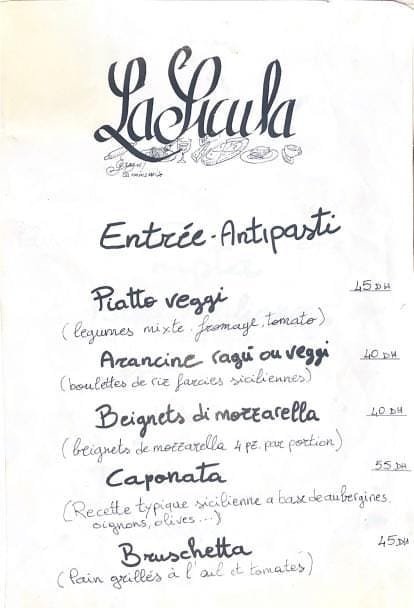 La Sicula
Entrée - Antipasti
Piatto veggi 45 DH
(legumes mixte. fromage, tomato)
Arancine ragù ou veggi 40 DH
(boulettes de riz farcies siciliennes)
Beignets di mozzarella 40 DH
(beignets de mozzarella 4 pz. par portion)
Caponata 55 DH
(Recette typique sicilienne a base de aubergines,
oignons, olives...)
Bruschetta 45 DH
(Pain grillés à l'ail et tomates)